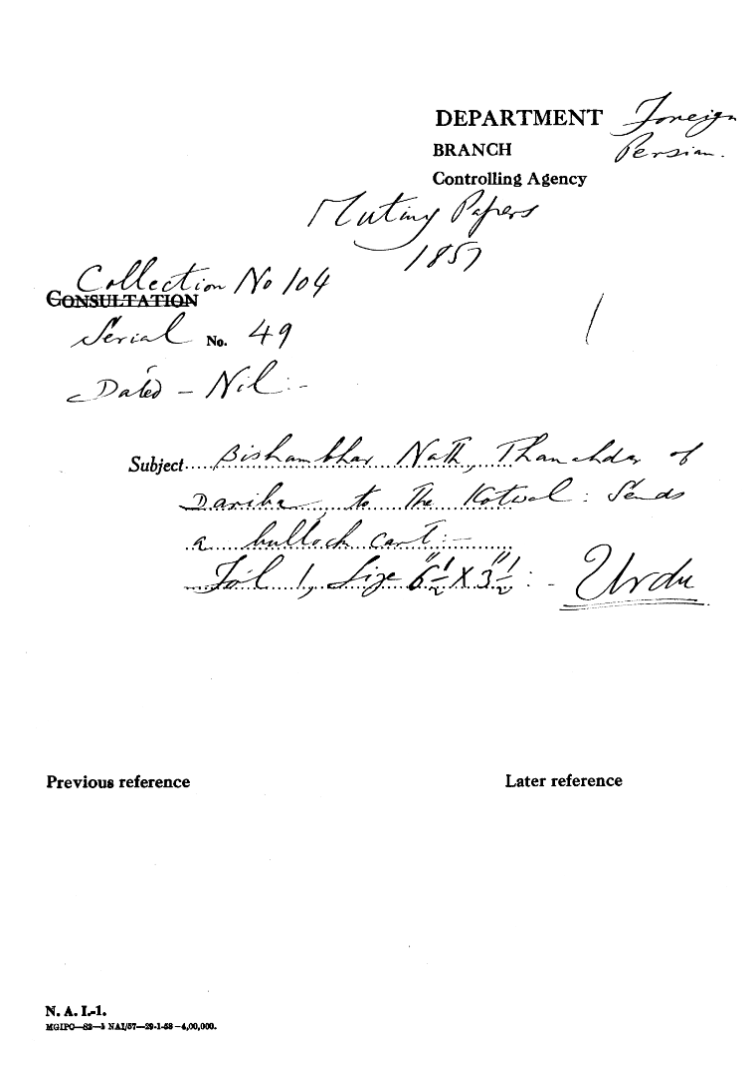 DEPARTMENT Foreign
BRANCH Persian.
Controlling Agency
Mutiny Papers
1857
Collection No 104
CONSULTATION
Serial No. 49
1
Dated – Nil:-
Subject.....Bishambhar Nath, Thanahdar of
Dariba, to the Kotwal: Sends
a bullock cart:-
Fol 1, Size 6½" X 3½":- Urdu
Previous reference Later reference
N. A. I.-1.
MGIPO—S2—3 NAI/57—29-1-58—4,00,000.